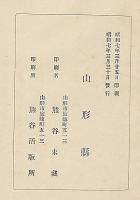 昭和七年三月廿五日印刷
昭和七年三月三十日發行
山形縣
山形市旅籠町五一三
印刷者 熊谷末藏
山形市旅籠町五一三
印刷所 熊谷活版所